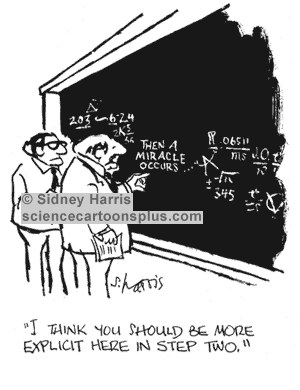 203 6-24
THEN A
MIRACLE
OCCURS...
.06511
345
© Sidney Harris
sciencecartoonsplus.com
S. Harris
"I THINK YOU SHOULD BE MORE
EXPLICIT HERE IN STEP TWO."